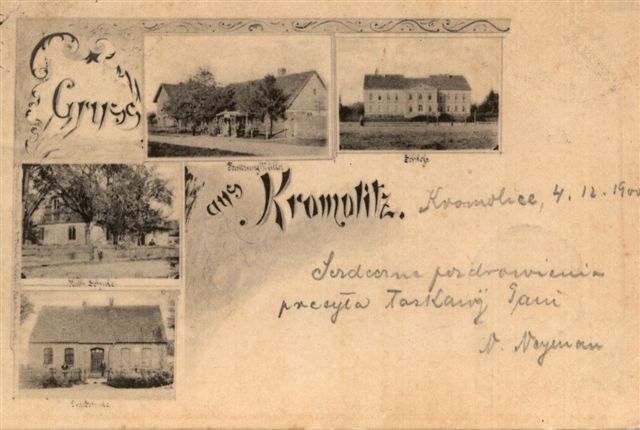 Gruss
aus Kromolitz.
Schloss
Kromolice, 4. 12. 1900
Serdeczne pozdrowienia
przesyła Łaskawej Pani
N. Neyman